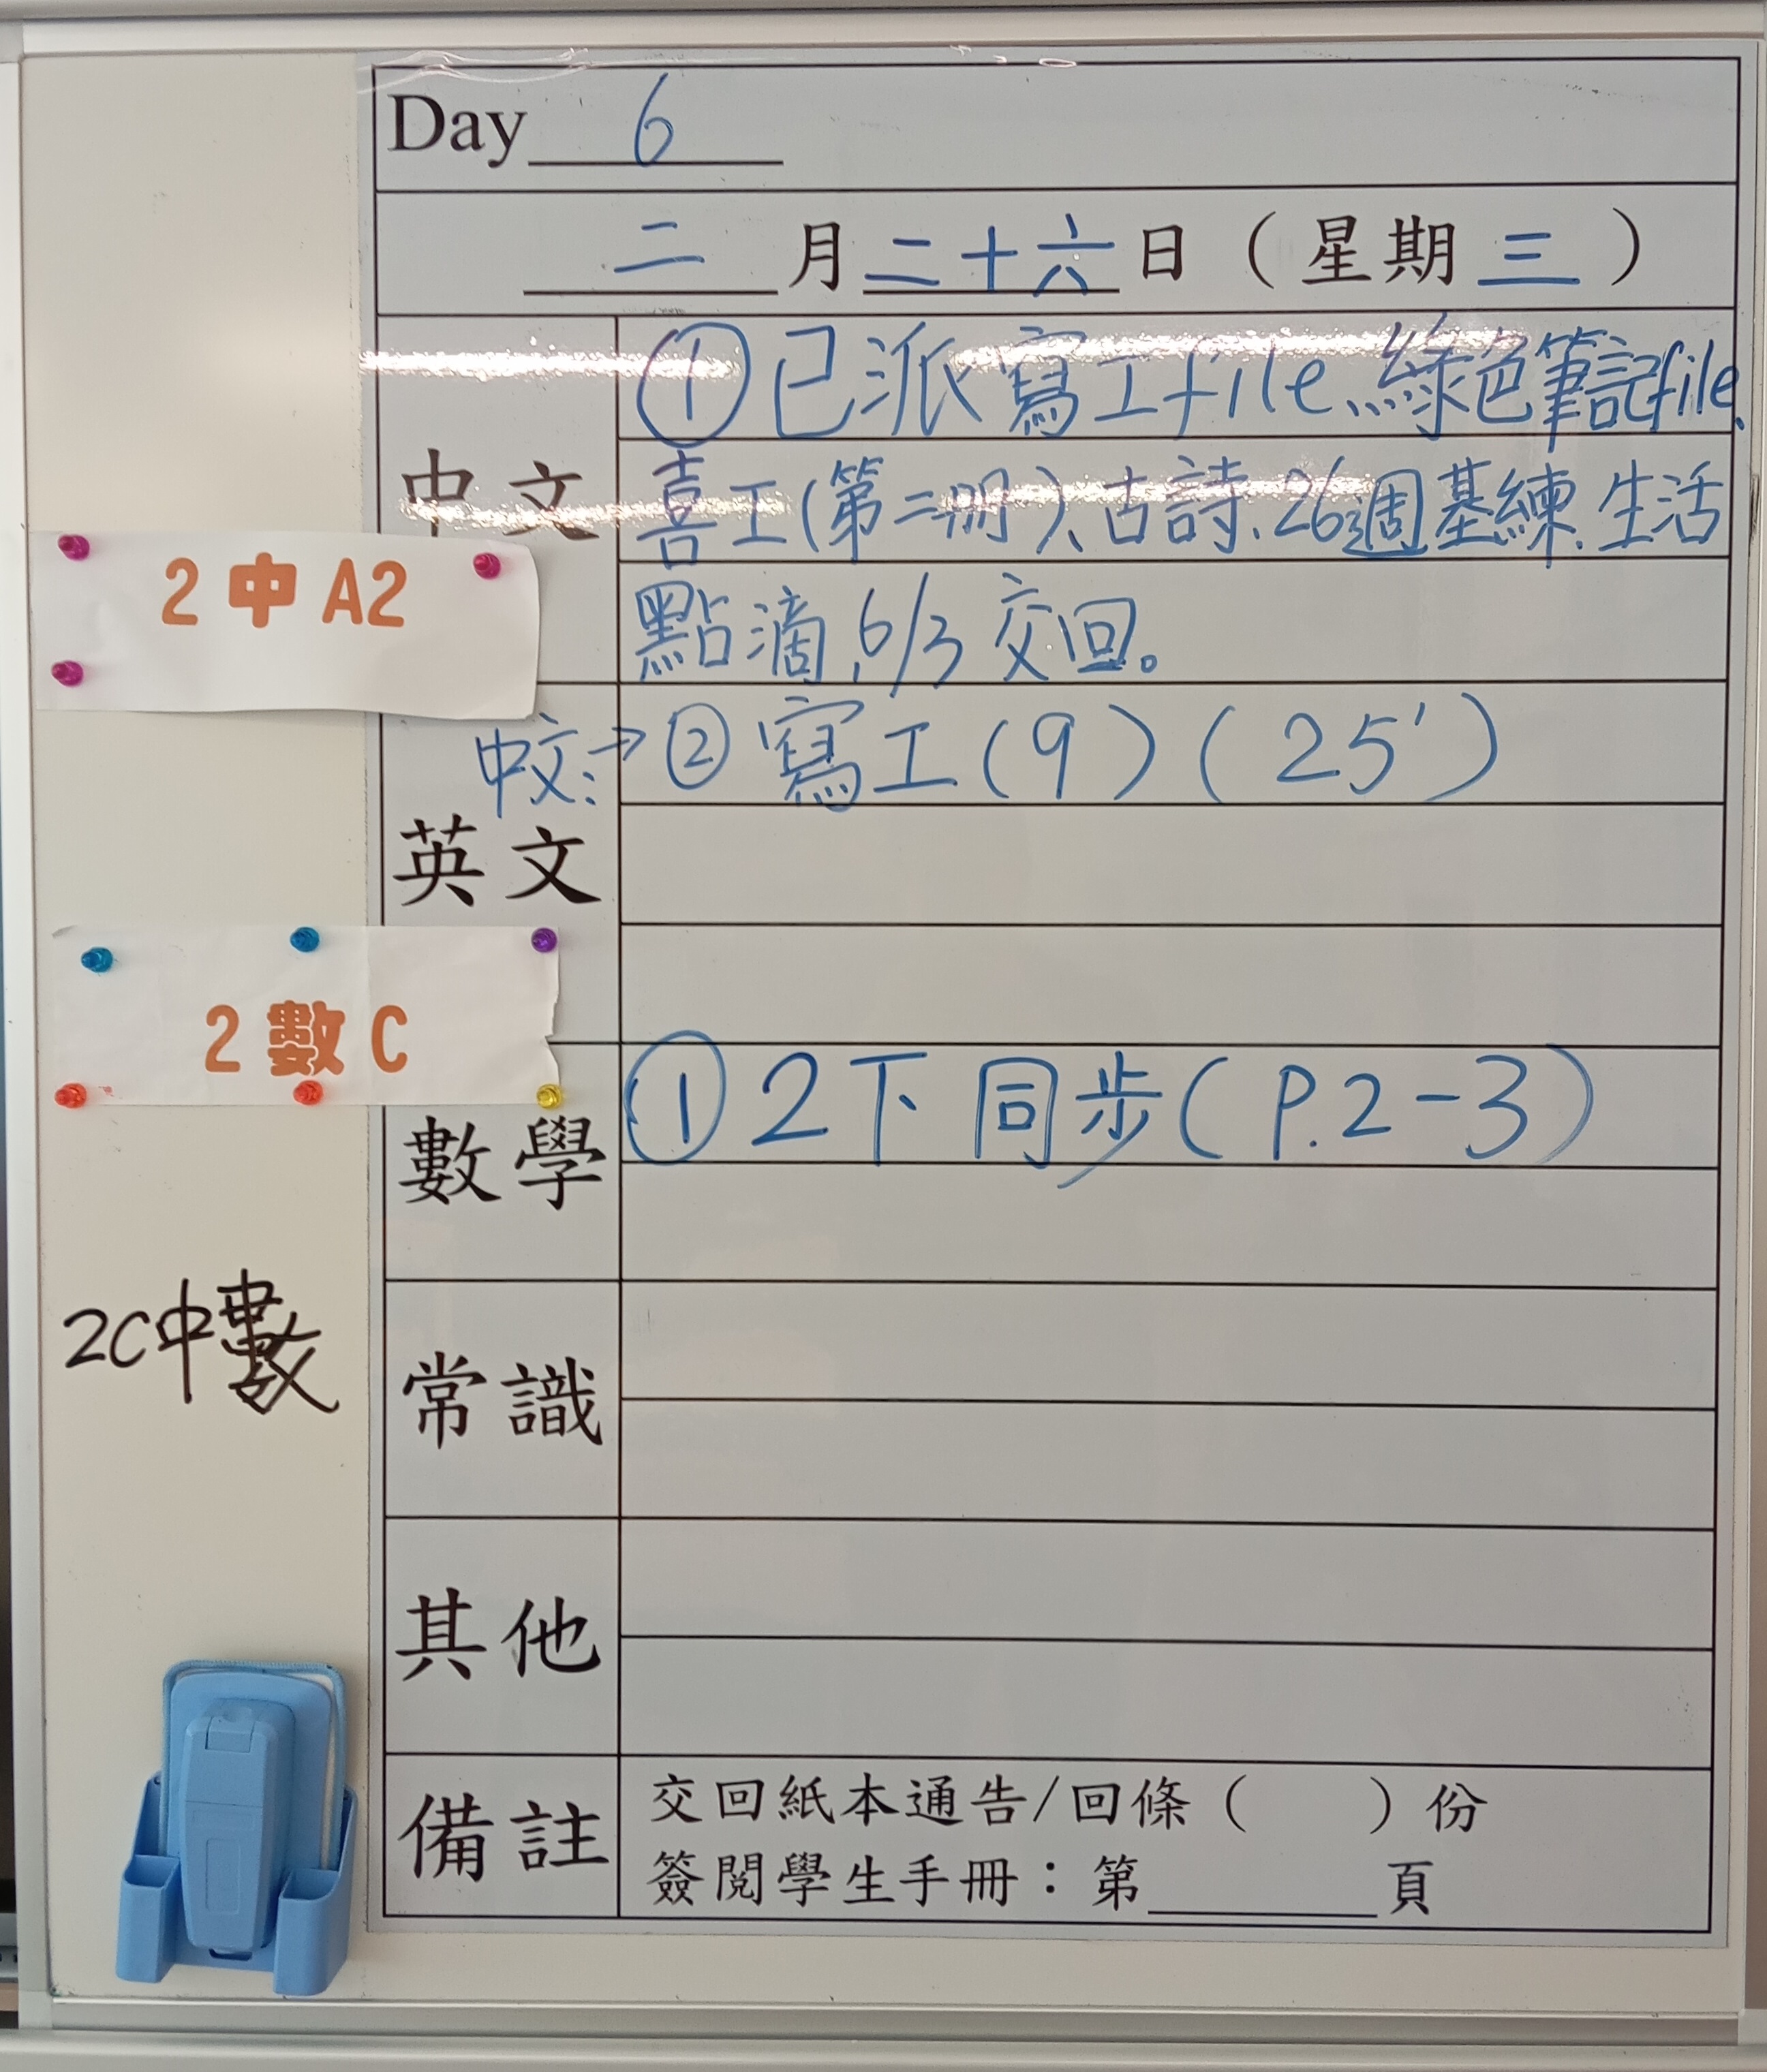 Day 6
二 月 二十六 日（星期 三 ）
中文
① 已派寫工file、綠色筆記file、
喜工(第二冊)、古詩、26週基練、生活
點滴，6/3 交回。
2 中 A2
中文：→ ② 寫工(9) (25')
英文
2 數 C
數學
① 2下同步(P.2-3)
2C中數
常識
其他
備註
交回紙本通告/回條（ ）份
簽閱學生手冊：第 頁